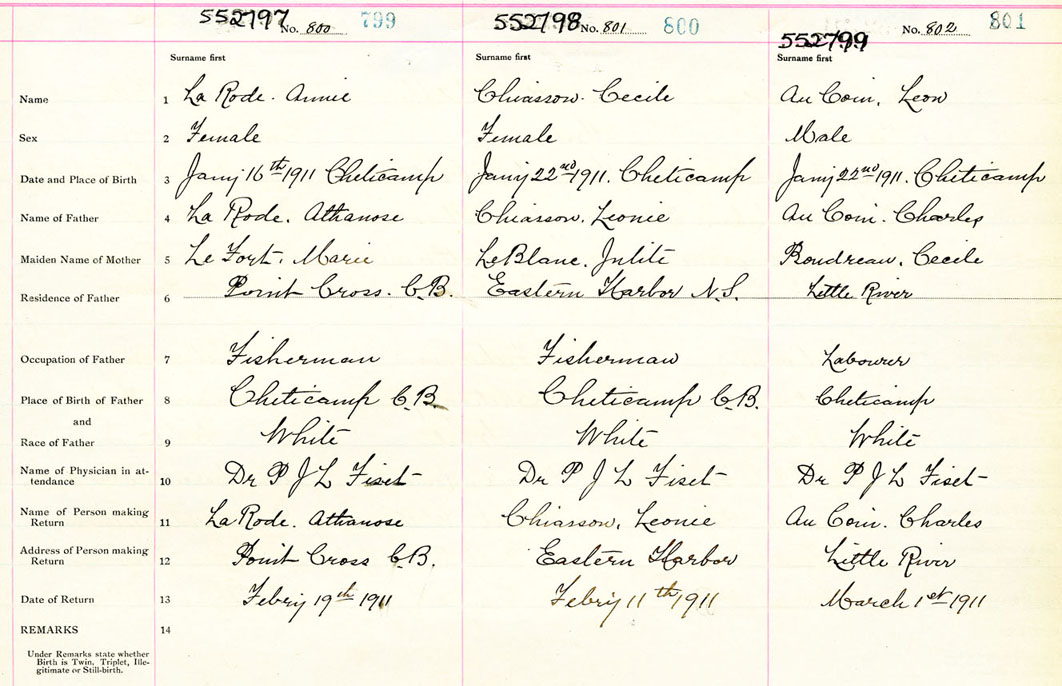 552797 No. 800 799 552798 No. 801 800 552799 No. 802 801
Surname first Surname first Surname first
Name 1 La Rode. Annie Chiasson. Cecile Au Coin, Leon
Sex 2 Female Female Male
Date and Place of Birth 3 Jany 16th 1911 Cheticamp Jany 22nd 1911. Cheticamp Jany 22nd 1911. Cheticamp
Name of Father 4 La Rode. Athanose Chiasson, Leonie Au Coin. Charles
Maiden Name of Mother 5 Le Fort, Marie LeBlanc, Julite Boudreau, Cecile
Residence of Father 6 Point Cross. C.B. Eastern Harbor N.S. Little River
Occupation of Father 7 Fisherman Fisherman Labourer
Place of Birth of Father 8 Cheticamp C.B. Cheticamp C.B. Cheticamp
and
Race of Father 9 White White White
Name of Physician in at-
tendance 10 Dr P J L Fiset Dr P J L Fiset Dr P J L Fiset
Name of Person making
Return 11 La Rode. Athanose Chiasson, Leonie Au Coin. Charles
Address of Person making
Return 12 Point Cross C.B. Eastern Harbor Little River
Date of Return 13 Febry 19th 1911 Febry 11th 1911 March 1st 1911
REMARKS 14
Under Remarks state whether
Birth is Twin, Triplet, Ille-
gitimate or Still-birth.